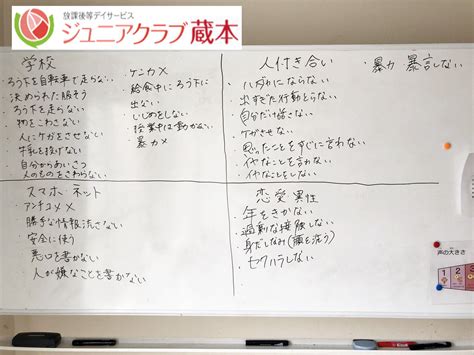 放課後等デイサービス
ジュニアクラブ蔵本
学校
・ろう下を自転車で走らない
・決められた服そう
・ろう下を走らない
・物をこわさない
・人にケガをさせない
・牛乳を投げない
・自分からあいさつ
・人のものをさわらない
・ケンカ×
・給食中にろう下に
出ない
・いじめをしない
・授業中は動かない
・暴力×
人付き合い
・ハダカにならない
・出すぎた行動とらない
・自分だけ話さない
・ケガさせない
・思ったことをすぐに言わない
・イヤなことを言わない
・イヤなことをしない
・暴力 暴言しない
スマホ・ネット
・アンチコメ×
・勝手な情報流さない
・安全に使う
・悪口を書かない
・人が嫌なことを書かない
恋愛 異性
・年をきかない
・過剰な接触しない
・身だしなみ(顔を洗う)
・セクハラしない
声の大きさ
1
2
3